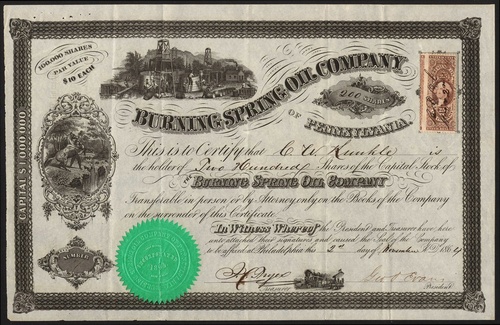 100,000 SHARES
PAR VALUE
$10 EACH
BURNING SPRING OIL COMPANY
OF PENNSYLVANIA.
200 SHARES
CAPITAL $1,000,000
This is to Certify that C. W. Kunkle is
the holder of Two Hundred Shares of the Capital Stock of
THE BURNING SPRING OIL COMPANY
Transferable in person or by Attorney only on the Books of the Company
on the surrender of this Certificate.
In Witness Whereof the President and Treasurer have here
unto attached their signatures and caused the Seal of the Company
to be affixed at Philadelphia this 2d day of November 1864
NUMBER
Treasurer
President